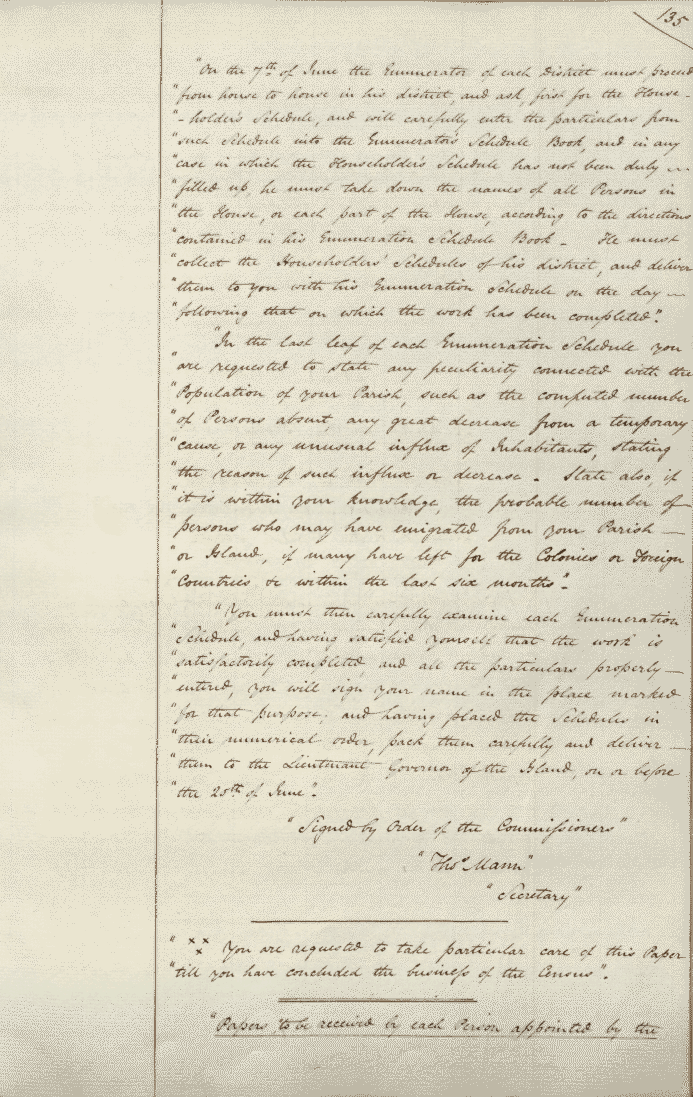 135
"On the 7th of June the Enumerator of each District must proceed
"from house to house in his district, and ask, first for the House-
"-holder's Schedule, and will carefully enter the particulars from
"such Schedule into the Enumerator's Schedule Book, and in any
"case in which the Householder's Schedule has not been duly —
"filled up, he must take down the names of all Persons in
"the House, or each part of the House, according to the directions
"contained in his Enumeration Schedule Book - He must
"collect the Householders' Schedules of his district, and deliver
"them to you with his Enumeration Schedule on the day —
"following that on which the work has been completed".
"In the last leaf of each Enumeration Schedule you
"are requested to state any peculiarity connected with the
"Population of your Parish, such as the computed number
"of Persons absent, any great decrease from a temporary
"cause, or any unusual influx of Inhabitants, stating
"the reason of such influx or decrease. State also, if
"it is within your knowledge, the probable number of —
"persons who may have emigrated from your Parish —
"or Island, if many have left for the Colonies or Foreign
"Countries or within the last six months".
"You must then carefully examine each Enumeration
"Schedule, and having satisfied yourself that the work is
"satisfactorily completed, and all the particulars properly —
"entered, you will sign your name in the place marked
"for that purpose; and having placed the Schedules in
"their numerical order, pack them carefully and deliver —
"them to the Lieutenant Governor of the Island, on or before
"the 20th of June".
"Signed by Order of the Commissioners"
"Thos. Mann"
"Secretary"
" x x x You are requested to take particular care of this Paper
"till you have concluded the business of the Census".
"Papers to be received by each Person appointed by the